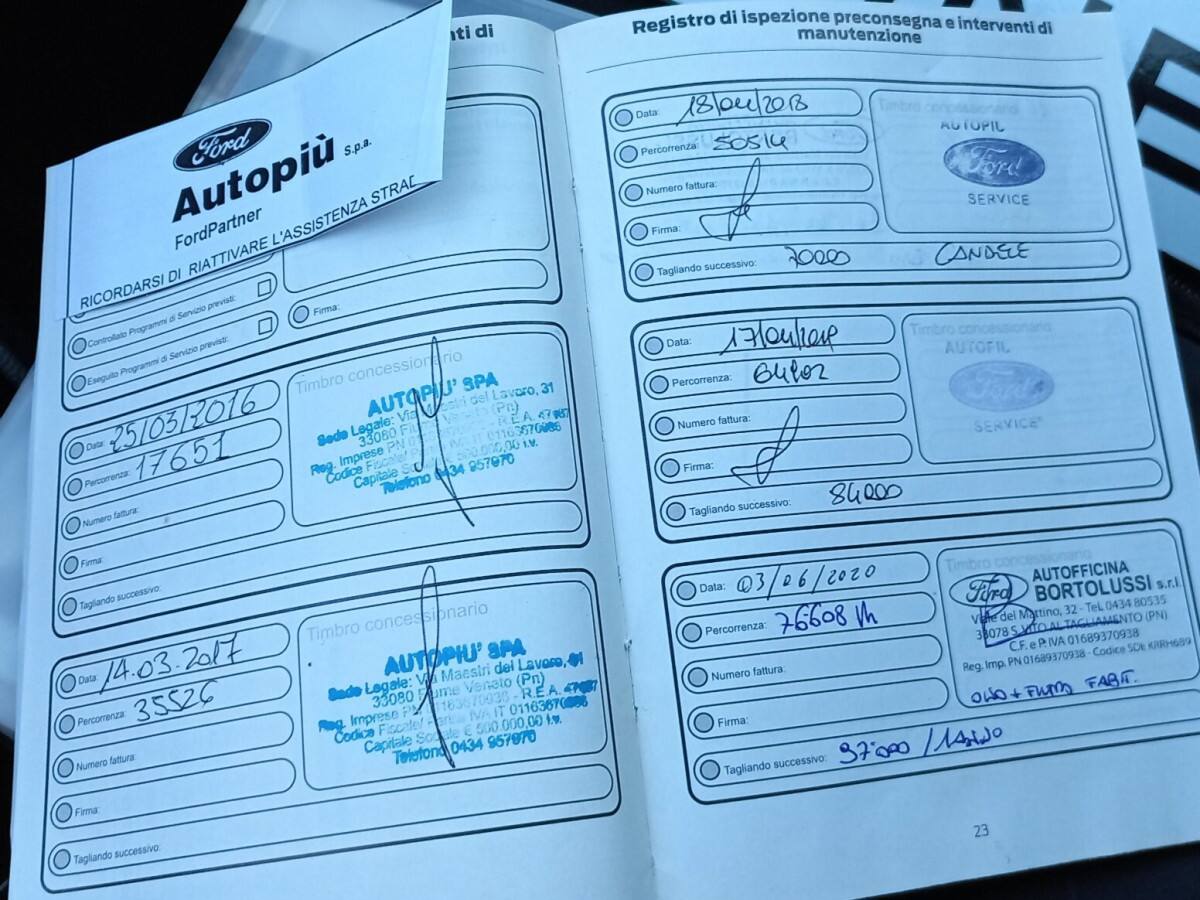 nti di
Ford
Autopiù S.p.a.
FordPartner
RICORDARSI DI RIATTIVARE L'ASSISTENZA STRAD
Controllato Programmi di Servizio previsti:
Eseguito Programmi di Servizio previsti:
Firma:
Data: 25/03/2016
Percorrenza: 17651
Numero fattura:
Firma:
Tagliando successivo:
Timbro concessionario
AUTOPIU' SPA
Sede Legale: Via Maestri del Lavoro, 31
33080 Fiume Veneto (Pn)
Reg. Imprese PN - R.E.A.
Codice Fiscale/ IVA IT 01163670936
Capitale Sociale € 500.000,00 i.v.
Telefono 0434 957970
Data: 14.03.2017
Percorrenza: 35526
Numero fattura:
Firma:
Tagliando successivo:
Timbro concessionario
AUTOPIU' SPA
Sede Legale: Via Maestri del Lavoro, 31
33080 Fiume Veneto (Pn)
Reg. Imprese PN 01163670936 - R.E.A.
Codice Fiscale/ IVA IT 01163670936
Capitale Sociale € 500.000,00 i.v.
Telefono 0434 957970
Registro di ispezione preconsegna e interventi di
manutenzione
Data: 18/04/2018
Percorrenza: 50514
Numero fattura:
Firma:
Tagliando successivo: 70000 CANDELE
Timbro concessionario
AUTOPIL
Ford
SERVICE
Data: 17/04/2019
Percorrenza: 64202
Numero fattura:
Firma:
Tagliando successivo: 84000
Timbro concessionario
AUTOPIL
Ford
SERVICE
Data: 03/06/2020
Percorrenza: 76608 Km
Numero fattura:
Firma:
Tagliando successivo: 97.000 / 1 ANNO
Timbro concessionario
Ford
AUTOFFICINA
BORTOLUSSI s.r.l.
Viale del Mattino, 32 - Tel. 0434 80535
33078 S. VITO AL TAGLIAMENTO (PN)
C.F. e P. IVA 01689370938
Reg. Imp. PN 01689370938 - Codice SDE KRRH6B9
OLIO + FILTRO FABIT.
23